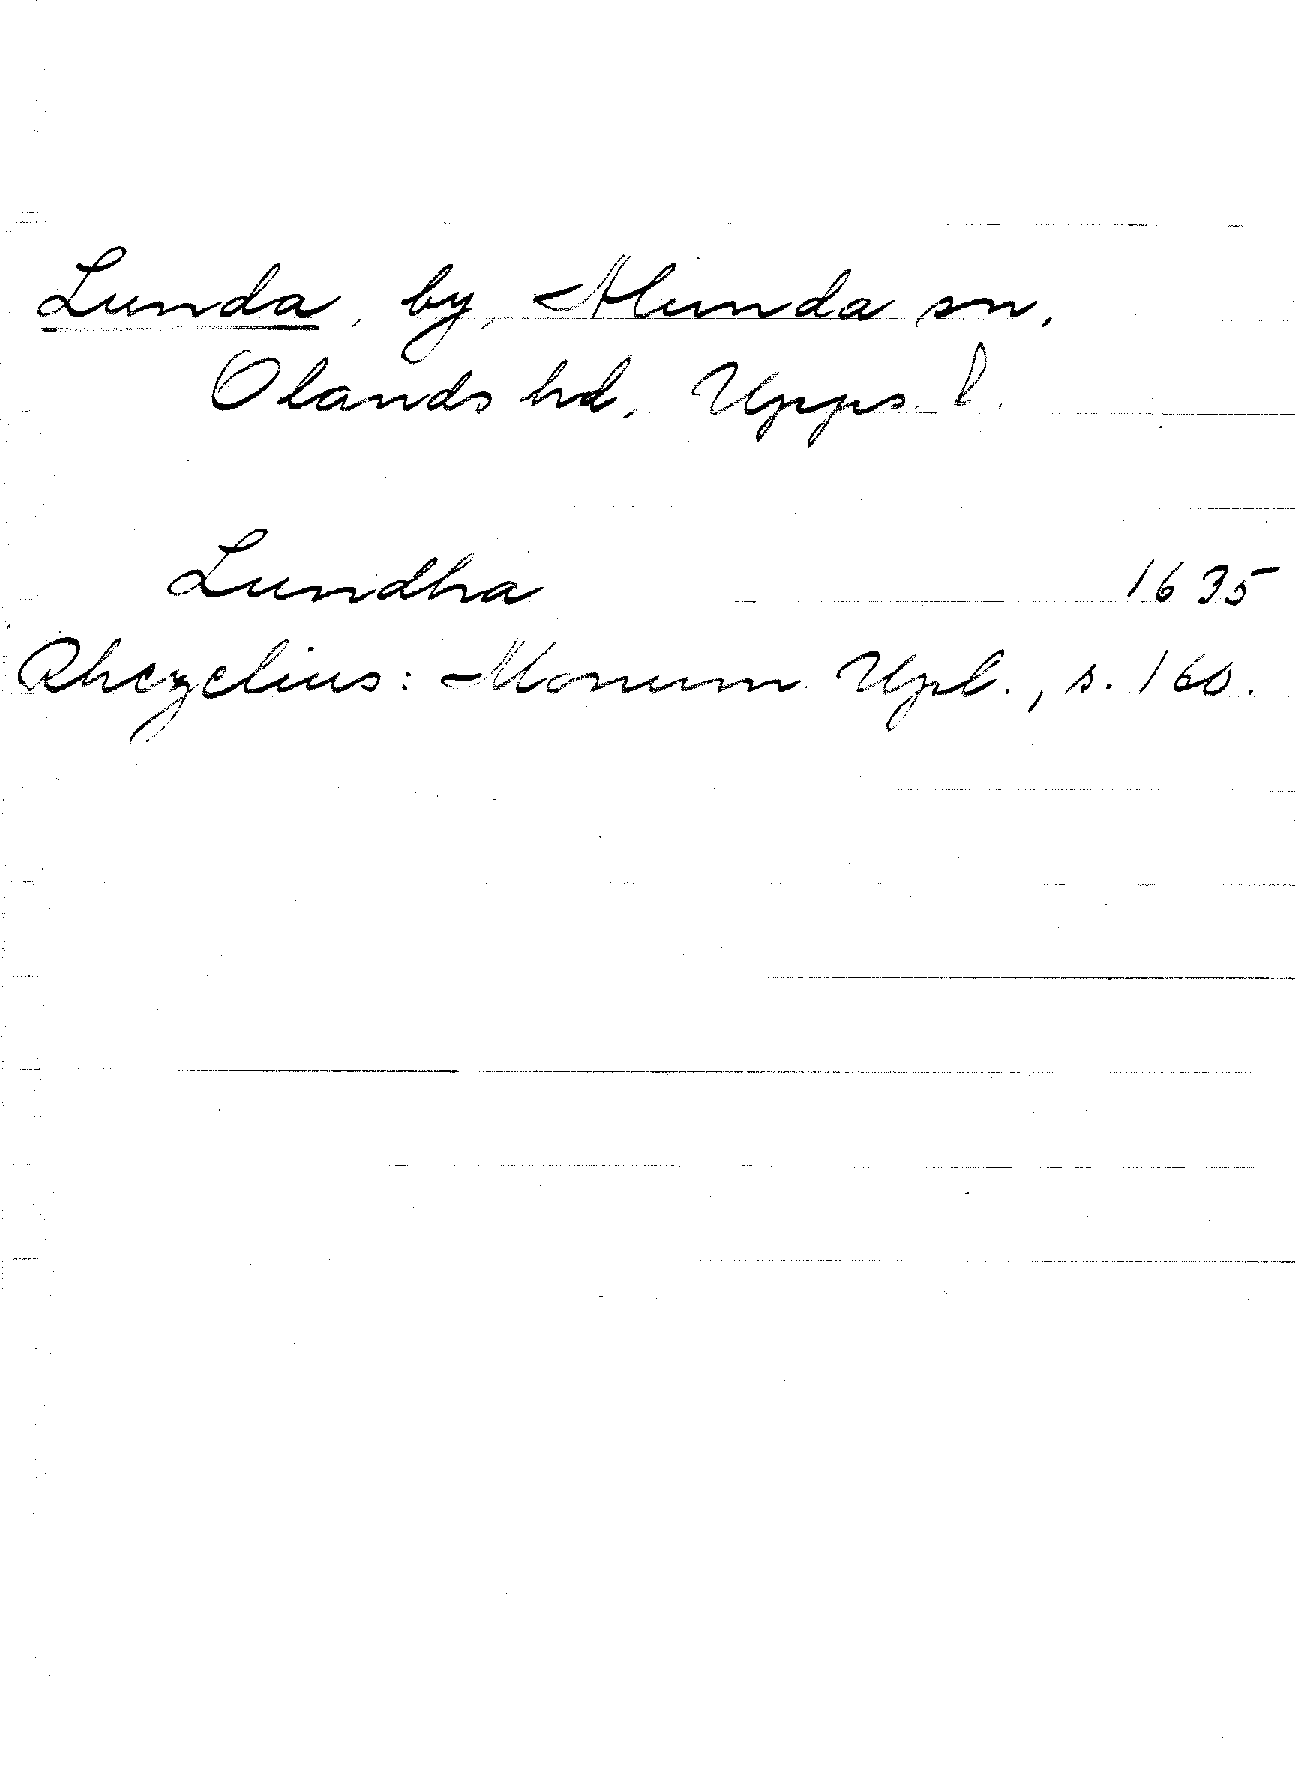 Lunda, by, Alunda sn,
Olands hd, Upps. l.
Lundha 1635
Rhezelius: Monum. Upl., s. 160.